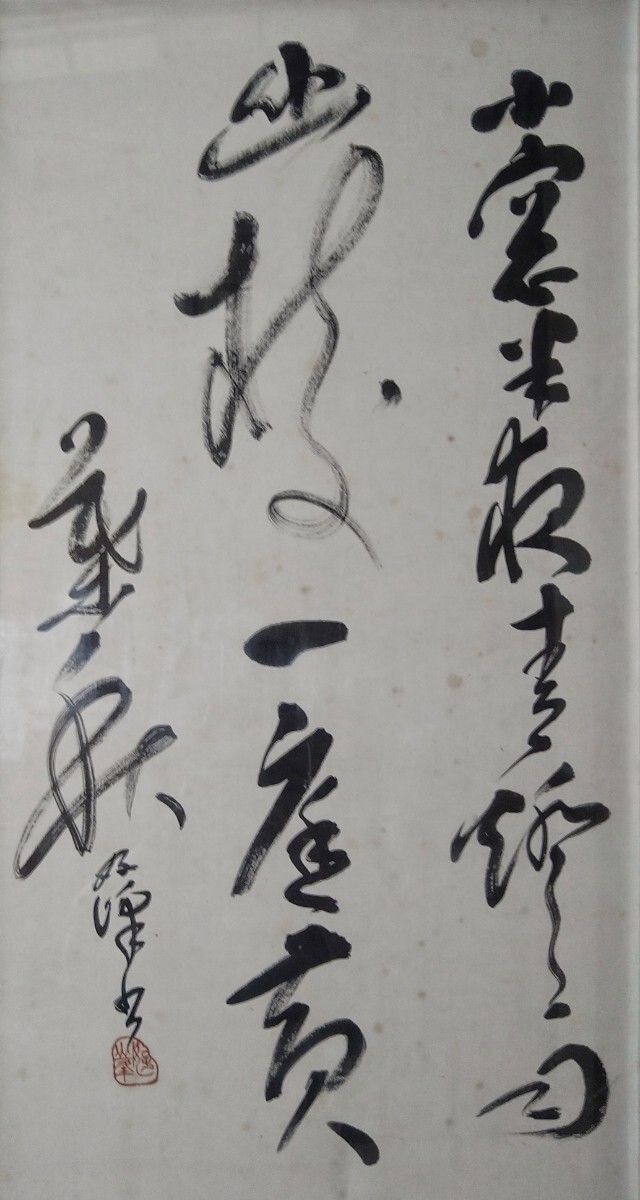 小窓半夜青燈雨
幽樹一庭黃
葉秋
書